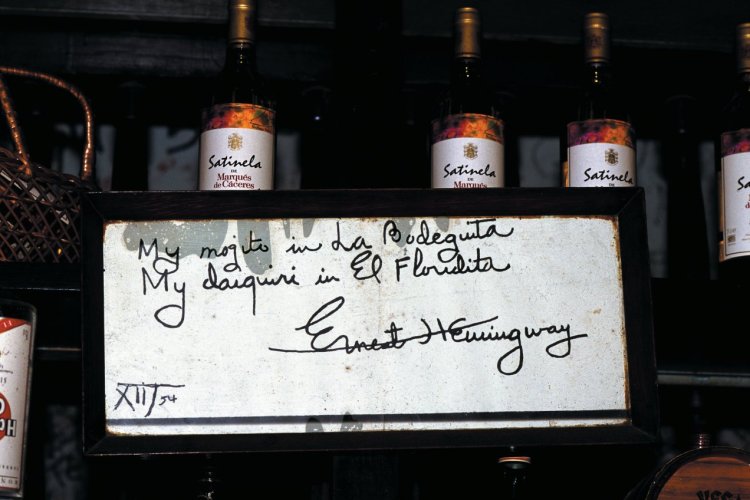 Satinela
DE
Marqués
de Cáceres
Satinela
DE
Marqués
Satinela
Satinela
My mojito in La Bodeguita
My daiquiri in El Floridita
Ernest Hemingway
XII 54